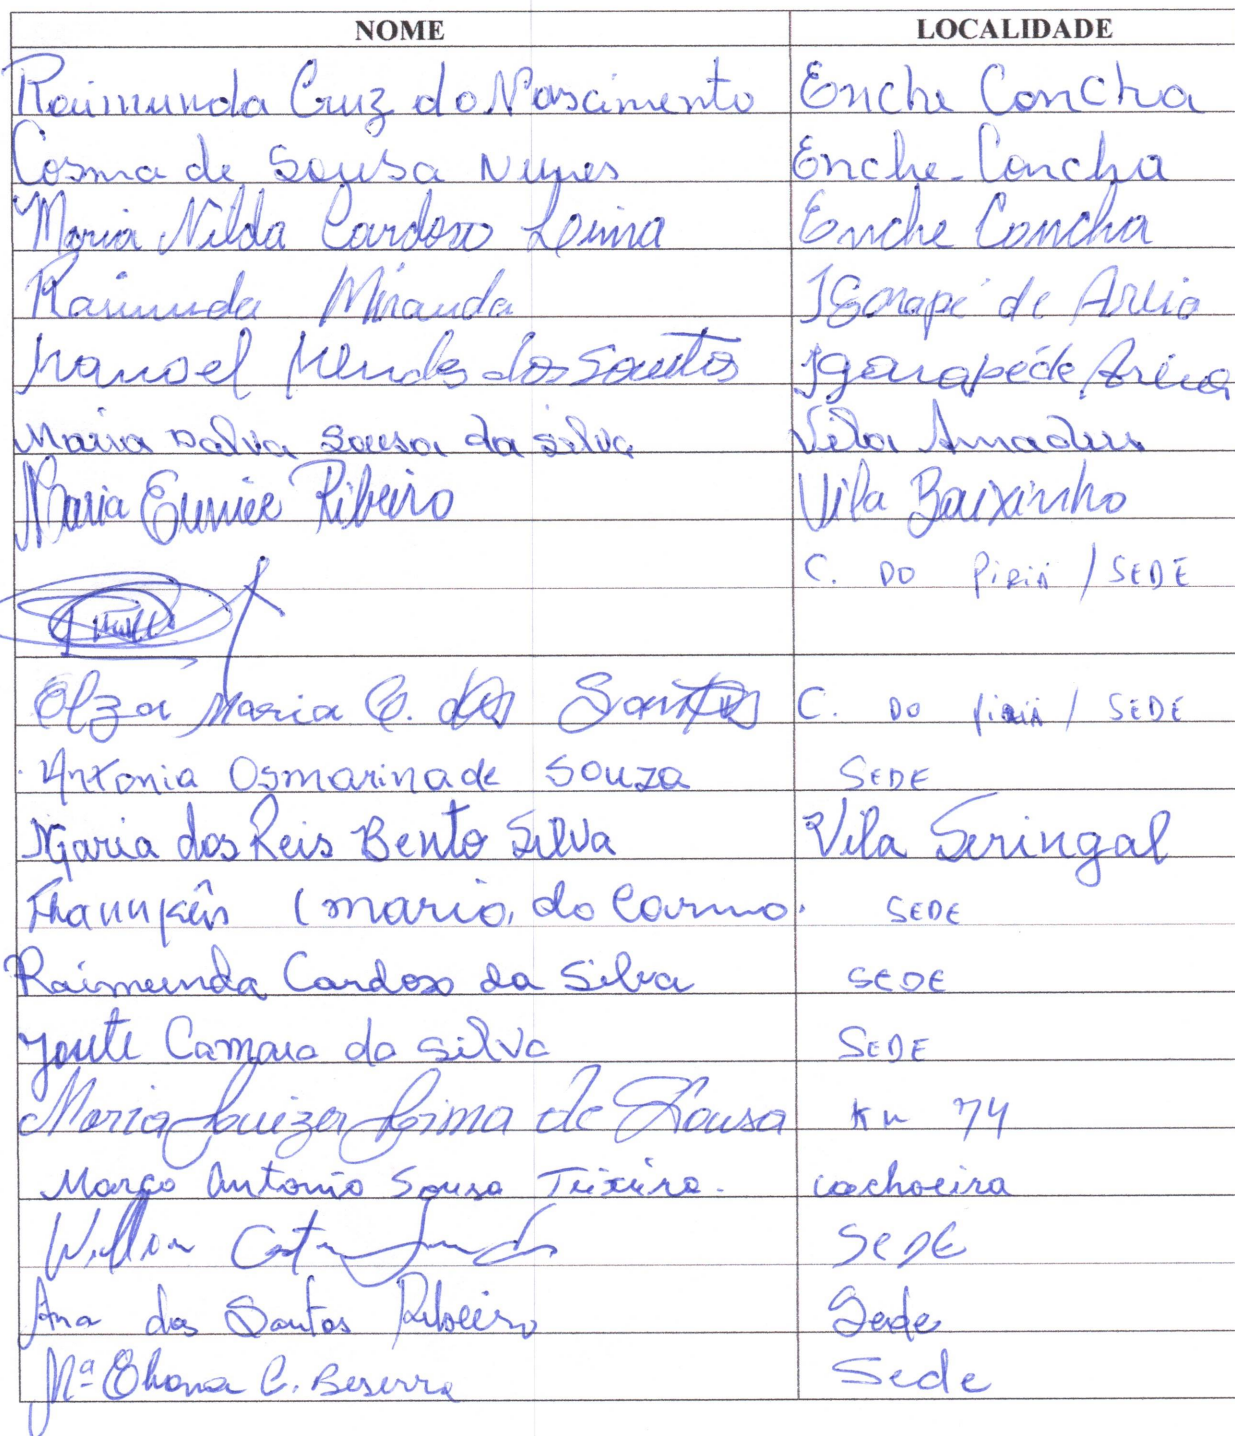 NOME LOCALIDADE
Raimunda Cruz do Nascimento Enche Concha
Cosma de Sousa Nunes Enche-Concha
Maria Nilda Cardoso Leima Enche Concha
Raimunda Miranda Igarapé de Areia
Manoel Mendes dos Santos Igarapé de Areia
Maria Dalva Sousa da Silva Vila Amadeus
Maria Eunice Ribeiro Vila Baixinho
C. DO PIRIÁ / SEDE
Olza Maria C. dos Santos C. DO PIRIÁ / SEDE
Antonia Osmarina de Souza SEDE
Maria dos Reis Bento Silva Vila Seringal
(maria do Carmo. SEDE
Raimunda Cardoso da Silva SEDE
Camara da Silva SEDE
Maria Luiza Lima de Sousa Km 74
Marco Antonio Sousa Teixeira. cachoeira
Costa SEDE
Ana dos Santos Ribeiro Sede
Mª C. Beserra Sede